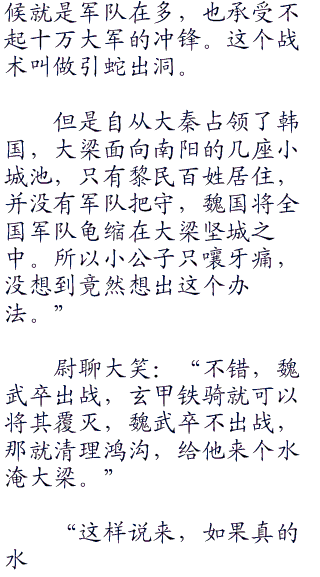 候就是军队在多，也承受不
起十万大军的冲锋。这个战
术叫做引蛇出洞。
但是自从大秦占领了韩
国，大梁面向南阳的几座小
城池，只有黎民百姓居住，
并没有军队把守，魏国将全
国军队龟缩在大梁坚城之
中。所以小公子只嚷牙痛，
没想到竟然想出这个办
法。”
尉聊大笑：“不错，魏
武卒出战，玄甲铁骑就可以
将其覆灭，魏武卒不出战，
那就清理鸿沟，给他来个水
淹大梁。”
“这样说来，如果真的
水